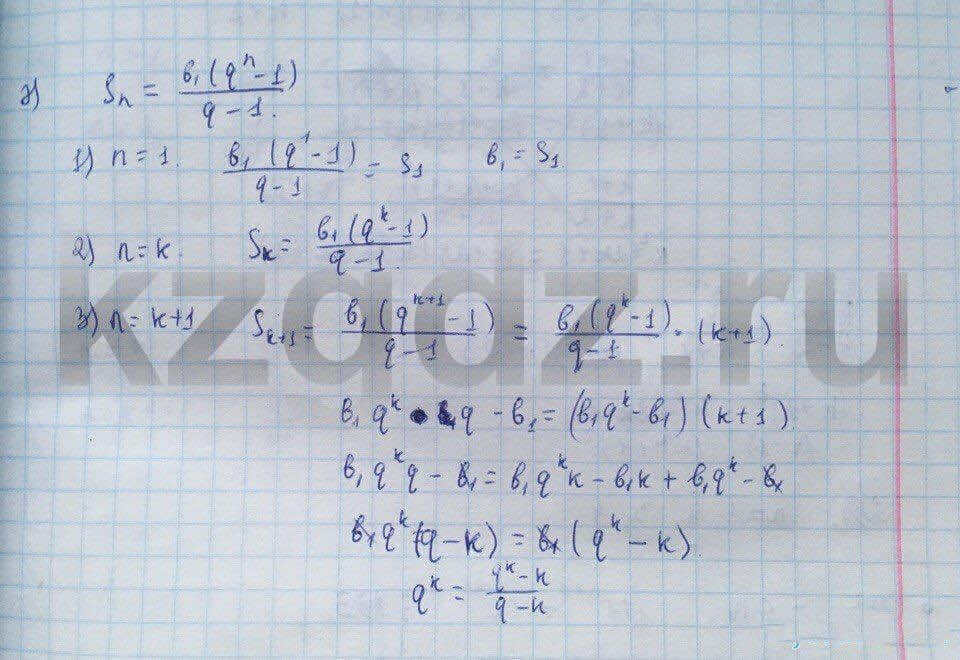 г) Sₙ = в₁(qⁿ-1)/q-1.
1) n=1. в₁(q¹-1)/q-1 = S₁ в₁ = S₁.
2) n=k. Sₖ = в₁(qᵏ-1)/q-1.
3) n=k+1 Sₖ₊₁ = в₁(qᵏ⁺¹-1)/q-1 = в₁(qᵏ-1)/q-1 · (k+1).
в₁qᵏ · q - в₁ = (в₁qᵏ-в₁)(k+1).
в₁qᵏq - в₁ = в₁qᵏk - в₁k + в₁qᵏ - в₁
в₁qᵏ(q-k) = в₁(qᵏ-k).
qᵏ = qᵏ-k/q-k
kzgdz.ru